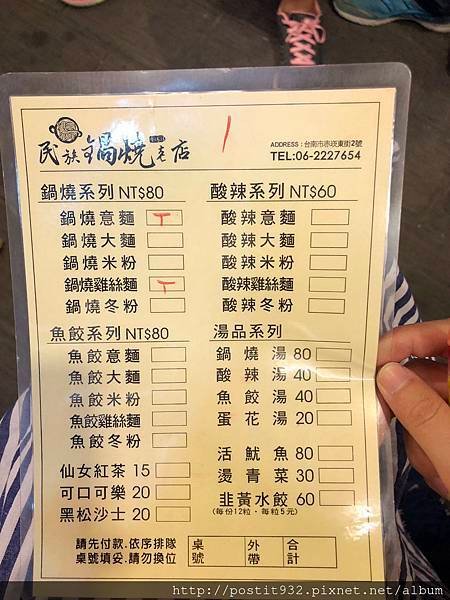 民族鍋燒老店
ADDRESS : 台南市赤崁東街2號
TEL:06-2227654
鍋燒系列 NT$80
鍋燒意麵
鍋燒大麵
鍋燒米粉
鍋燒雞絲麵
鍋燒冬粉
酸辣系列 NT$60
酸辣意麵
酸辣大麵
酸辣米粉
酸辣雞絲麵
酸辣冬粉
魚餃系列 NT$80
魚餃意麵
魚餃大麵
魚餃米粉
魚餃雞絲麵
魚餃冬粉
湯品系列
鍋燒湯 80
酸辣湯 40
魚餃湯 40
蛋花湯 20
仙女紅茶 15
可口可樂 20
黑松沙士 20
活魷魚 80
燙青菜 30
韭黃水餃 60
(每份12粒，每粒5元)
請先付款.依序排隊
桌號填妥.請勿換位
桌號
外帶
合計
http://postit932.pixnet.net/album